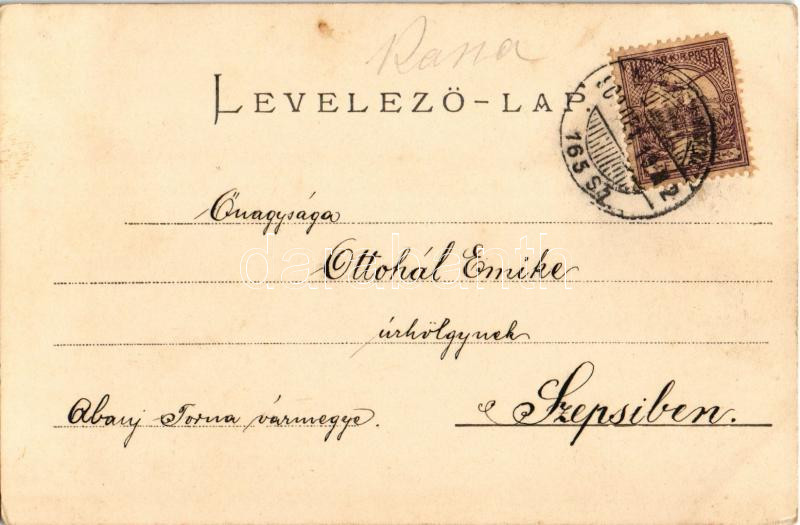 Kassa
LEVELEZŐ-LAP
MAGYAR KIR. POSTA
165 SZ.
Őnagysága
Ottohál Emike
úrhölgynek
Abauj Torna vármegye.
Szepsiben.
darabanth